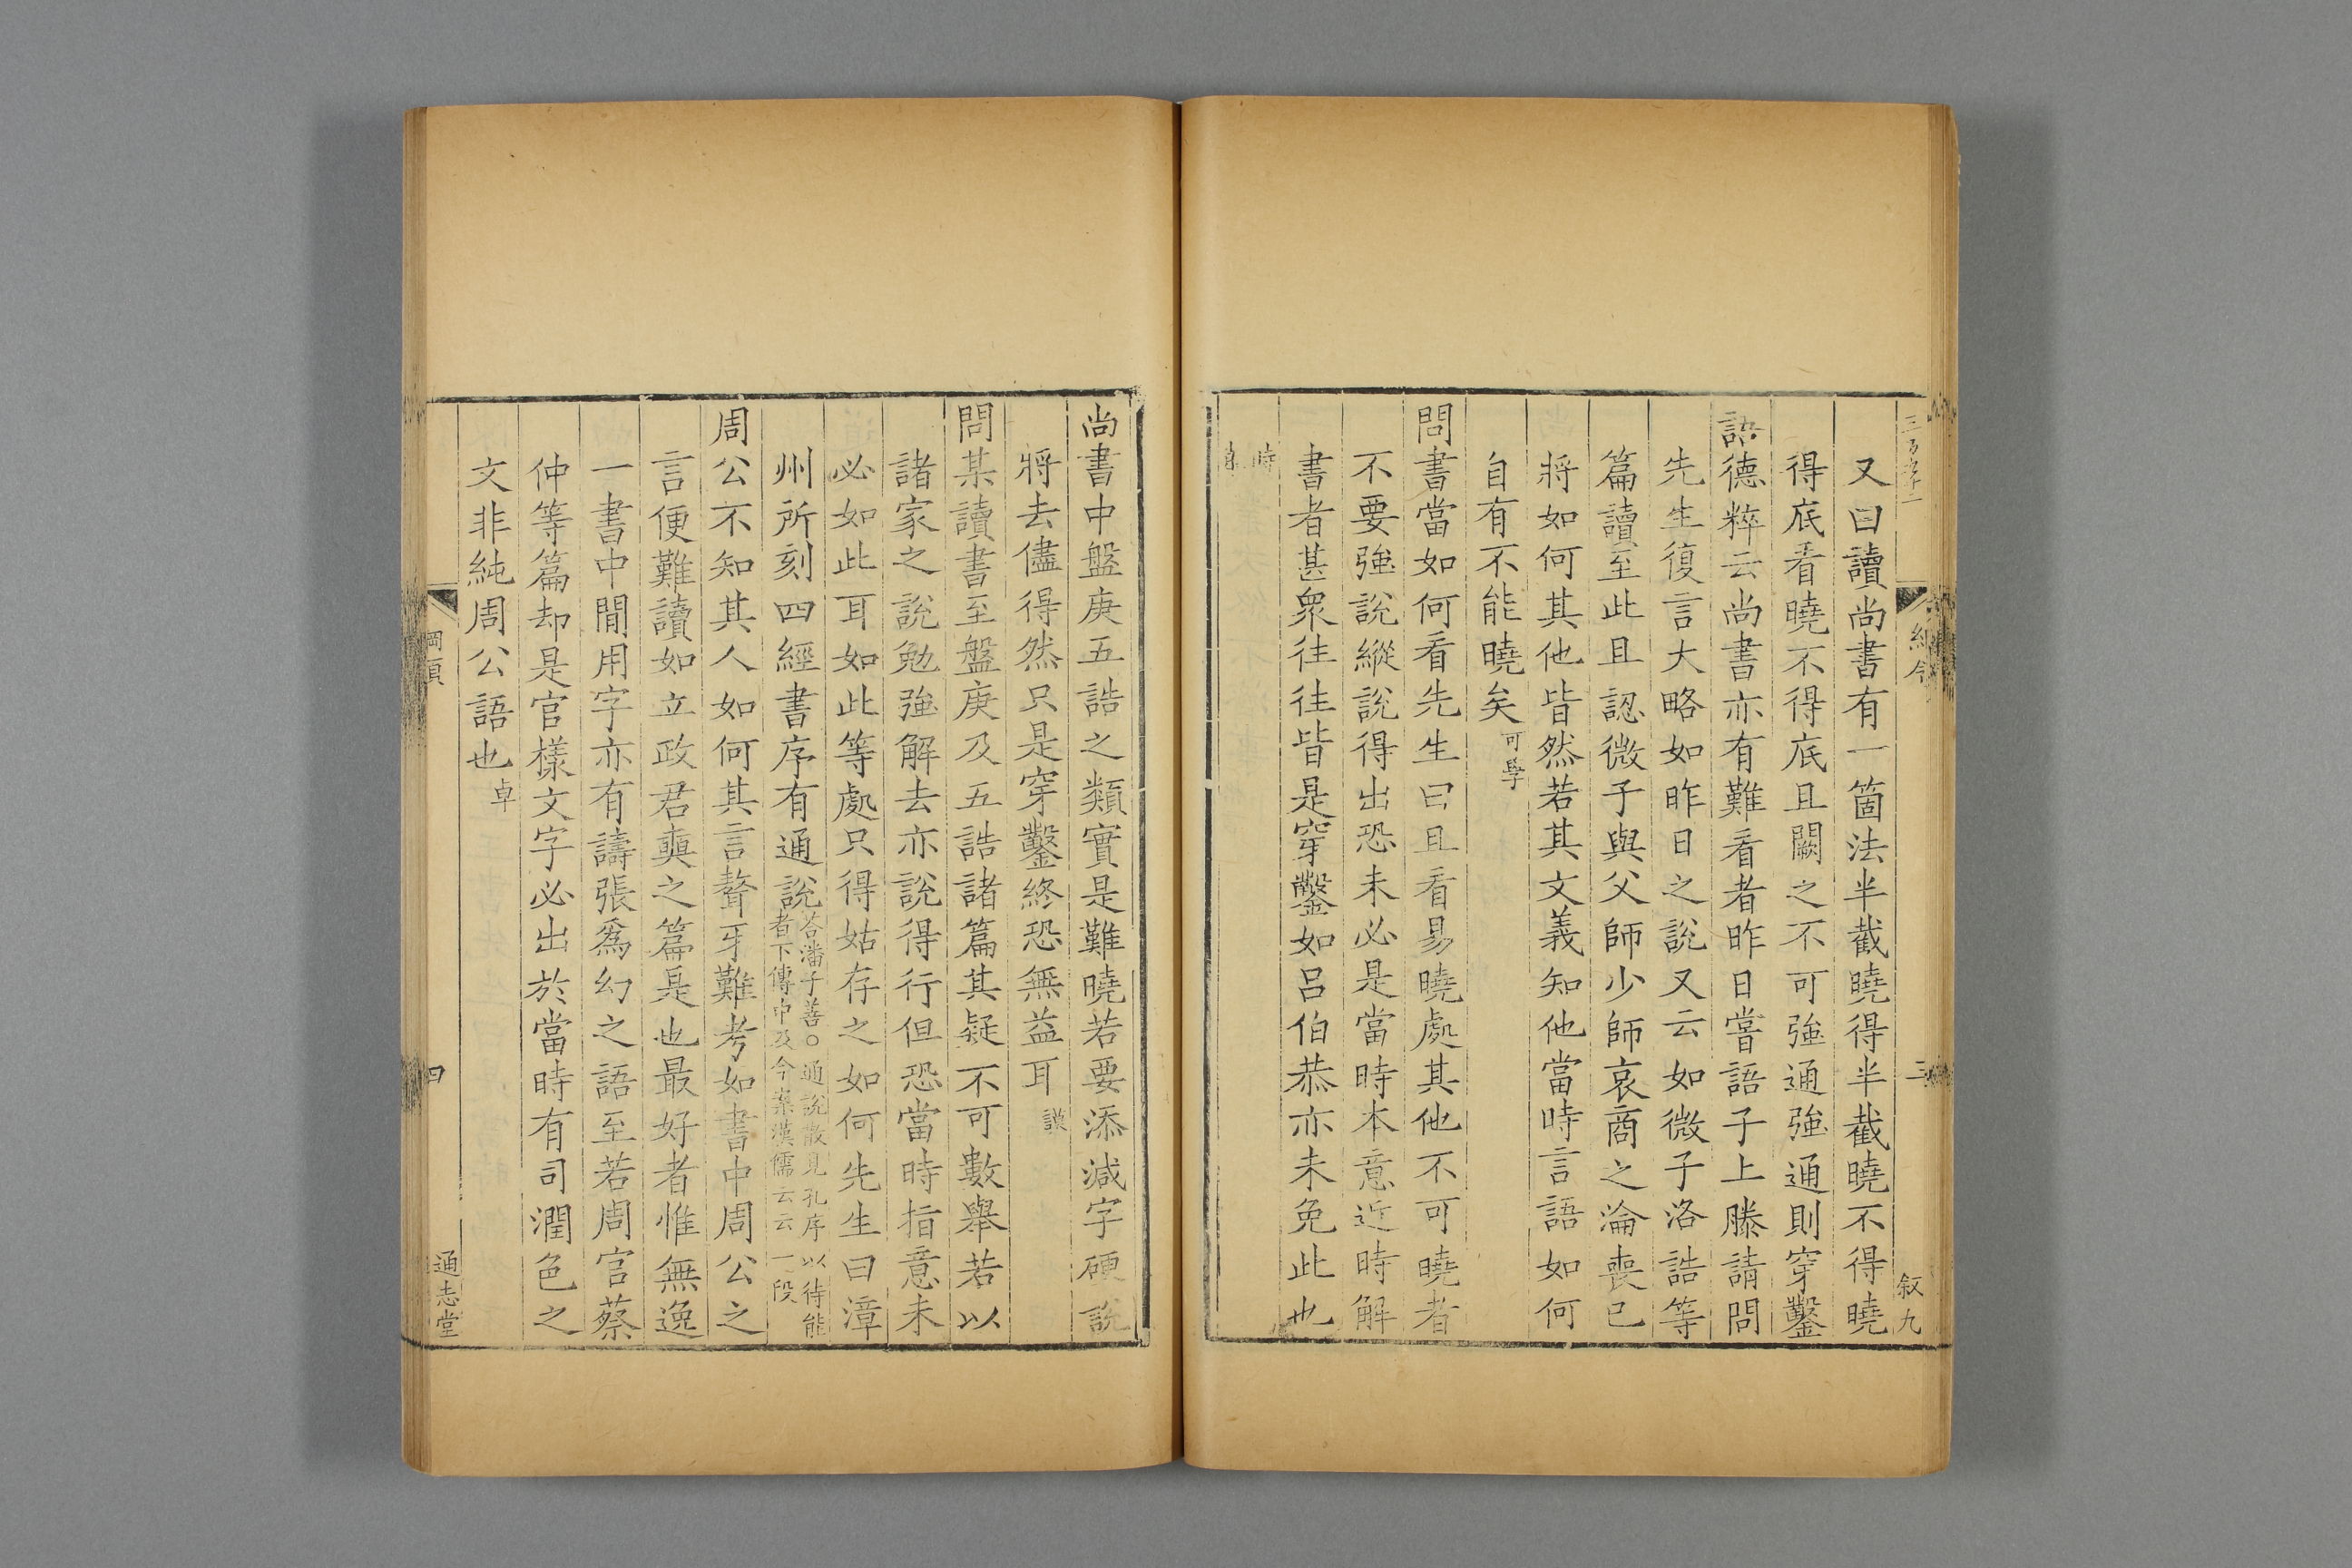 又曰讀尚書有一箇法半截曉得半截曉不得曉
得底看曉不得底且闕之不可強通強通則穿鑿
語德粹云尚書亦有難看者昨日嘗語子上滕請問
先生復言大略如昨日之說又云如微子洛誥等
篇讀至此且認微子與父師少師哀商之淪喪已
將如何其他皆然若其文義知他當時言語如何
自有不能曉矣可學
問書當如何看先生曰且看易曉處其他不可曉者
不要強說縱說得出恐未必是當時本意近時解
書者甚衆往往皆是穿鑿如呂伯恭亦未免此也
時
叙九
三
尚書中盤庚五誥之類實是難曉若要添減字硬說
將去儘得然只是穿鑿終恐無益耳謨
問某讀書至盤庚及五誥諸篇其疑不可數舉若以
諸家之說勉強解去亦說得行但恐當時指意未
必如此耳如此等處只得姑存之如何先生曰漳
州所刻四經書序有通說
荅潘子善○通說散見孔序以待能
者下傳中及今案漢儒云云一段
周公不知其人如何其言聱牙難考如書中周公之
言便難讀如立政君奭之篇是也最好者惟無逸
一書中間用字亦有譸張爲幻之語至若周官蔡
仲等篇却是官樣文字必出於當時有司潤色之
文非純周公語也卓
綱領
四
通志堂